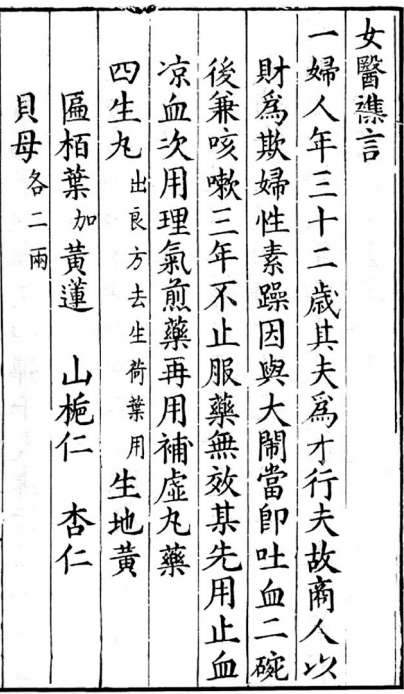 女醫襍言
一婦人年三十二歲其夫爲才行夫故商人以
財爲欺婦性素躁因與大鬧當卽吐血二碗
後兼咳嗽三年不止服藥無效某先用止血
凉血次用理氣煎藥再用補虛丸藥
四生丸出良方去生荷葉用生地黃
匾栢葉加黃蓮 山梔仁 杏仁
貝母各二兩